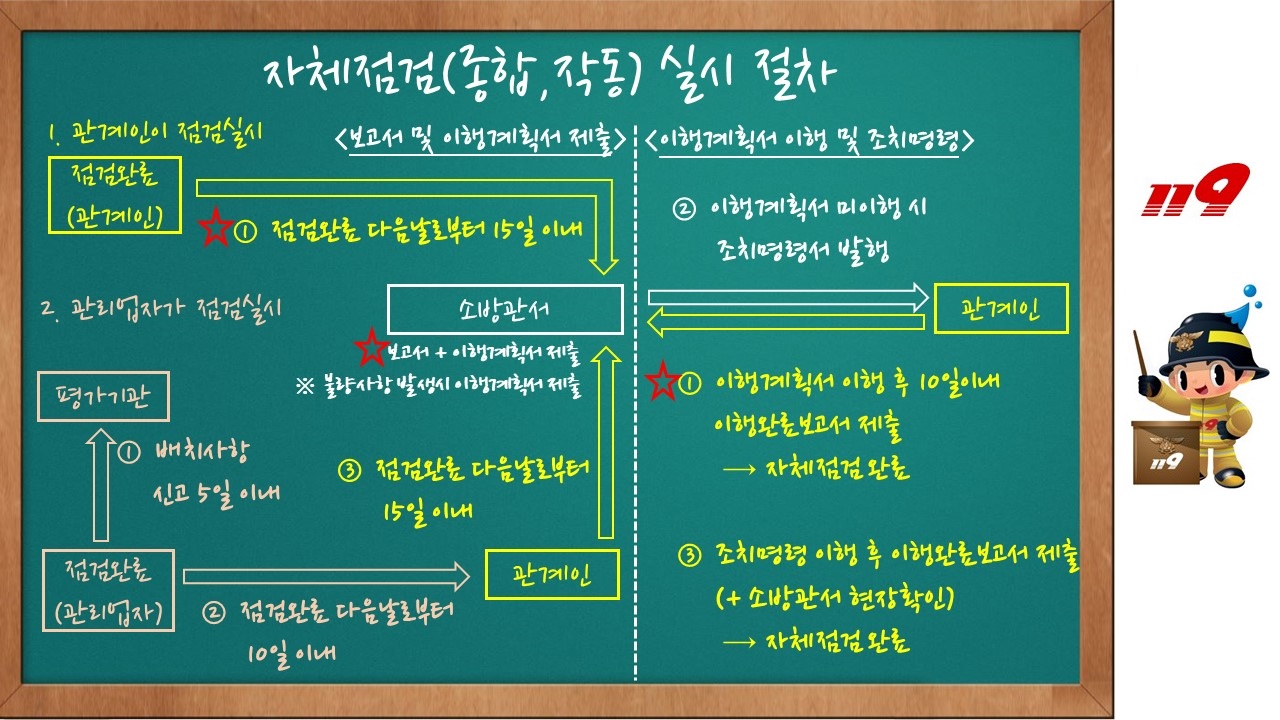 자체점검(종합,작동) 실시 절차
1. 관계인이 점검실시
<보고서 및 이행계획서 제출>
점검완료
(관계인)
☆① 점검완료 다음날로부터 15일 이내
2. 관리업자가 점검실시
소방관서
☆보고서 + 이행계획서 제출
※ 불량사항 발생시 이행계획서 제출
평가기관
① 배치사항
신고 5일 이내
③ 점검완료 다음날로부터
15일 이내
점검완료
(관리업자)
관계인
② 점검완료 다음날로부터
10일 이내
<이행계획서 이행 및 조치명령>
② 이행계획서 미이행 시
조치명령서 발행
관계인
☆① 이행계획서 이행 후 10일이내
이행완료보고서 제출
→ 자체점검 완료
③ 조치명령 이행 후 이행완료보고서 제출
(+ 소방관서 현장확인)
→ 자체점검 완료
119
119
119